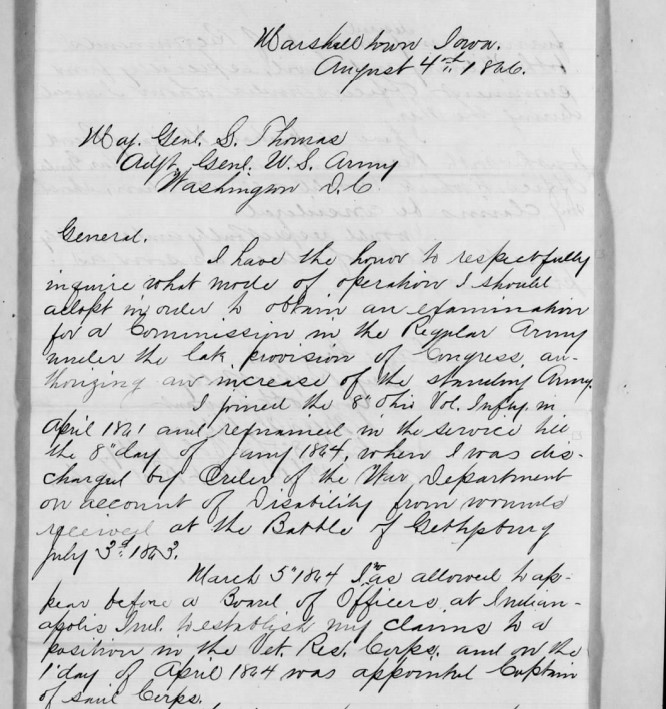 Marshalltown Iowa.
August 4th 1866.
Maj. Genl. L. Thomas
Adjt. Genl. U.S. Army
Washington D.C.
General.
I have the honor to respectfully
inquire what mode of operation I should
adopt in order to obtain an examination
for a Commission in the Regular Army
under the late provision of Congress, au-
thorizing an increase of the standing Army.
I joined the 8" Ohio Vol. Infty. in
April 1861 and remained in the service till
the 8" day of Jany 1864, when I was dis-
charged by Order of the War Department
on account of Disability from wounds
received at the Battle of Gettysburg
July 3d 1863.
March 5" 1864 I was allowed to ap-
pear before a Board of Officers at Indian-
apolis Ind. to establish my claims to a
position in the Vet. Res. Corps. and on the
1" day of April 1864 was appointed Captain
of said Corps.